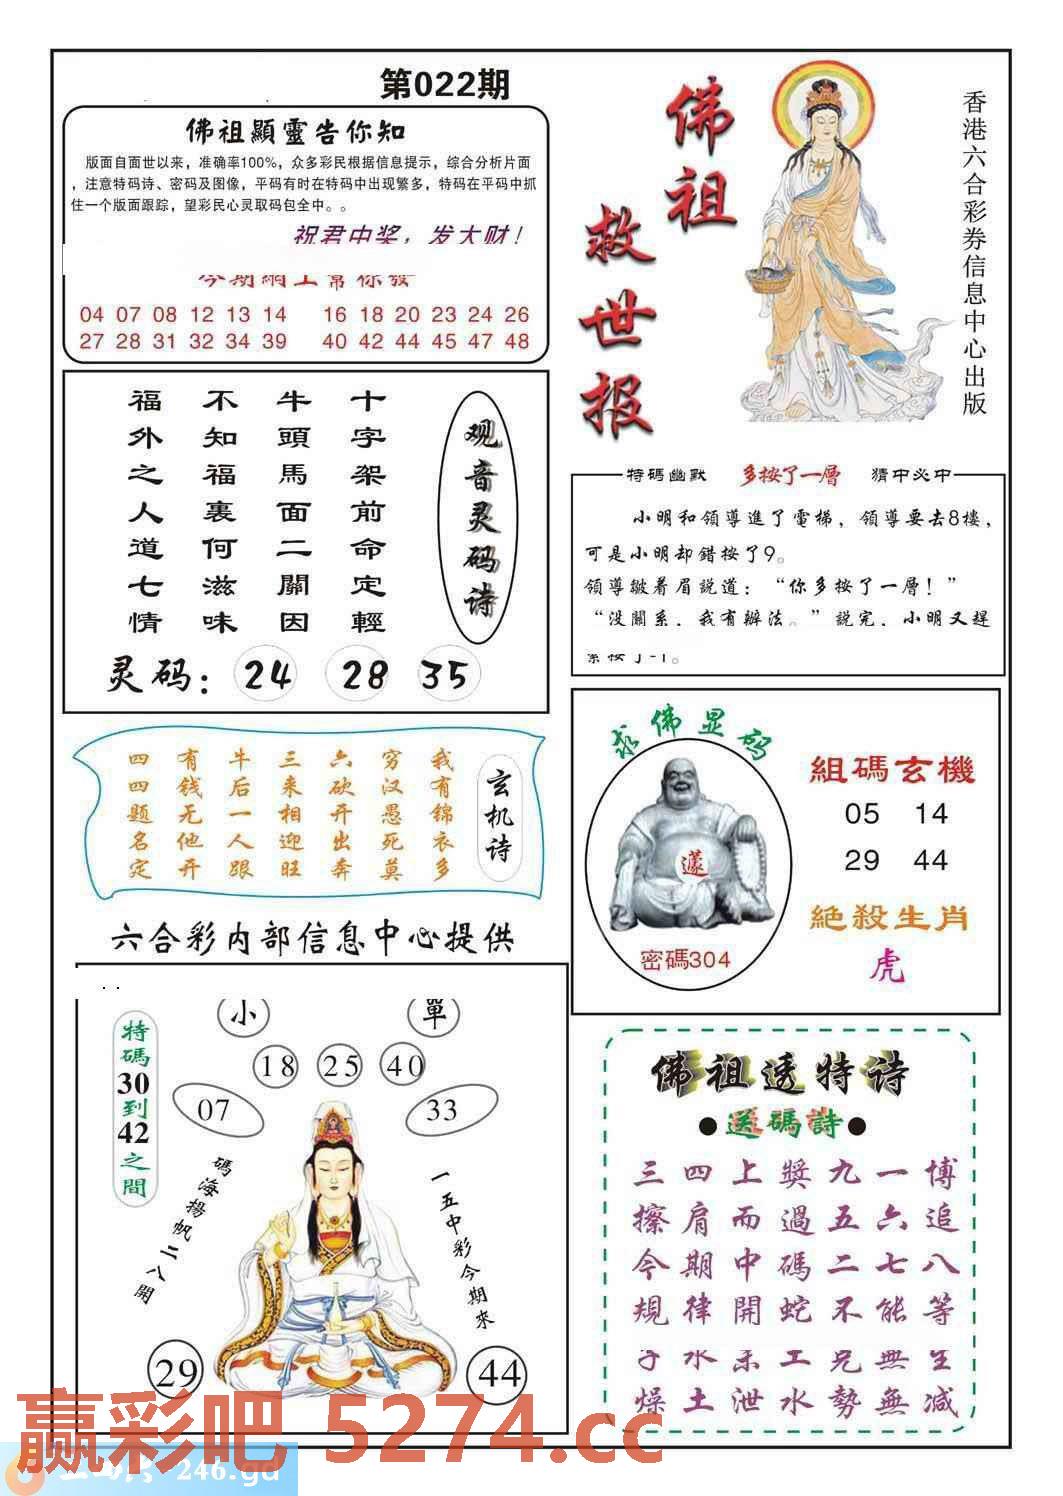 第022期
佛祖顯靈告你知
版面自面世以来，准确率100%，众多彩民根据信息提示，综合分析片面
，注意特码诗、密码及图像，平码有时在特码中出现繁多，特码在平码中抓
住一个版面跟踪，望彩民心灵取码包全中。。
祝君中奖，发大财！
今期網上幫你發
04 07 08 12 13 14 16 18 20 23 24 26
27 28 31 32 34 39 40 42 44 45 47 48
佛祖
救世报
香港六合彩券信息中心出版
观音灵码诗
十字架前命定輕
牛頭馬面二關因
不知福裏何滋味
福外之人道七情
灵码：24 28 35
特碼幽默 多按了一層 猜中必中
小明和領導進了電梯，領導要去8樓，
可是小明却錯按了9。
領導皺着眉説道：“你多按了一層！”
“没關系，我有辦法。”説完，小明又趕
玄机诗
我有锦衣多
穷汉愚死莫
六砍开出奔
三来相迎旺
牛后一人跟
有钱无他开
四四题名定
求佛显码
密碼304
組碼玄機
05 14
29 44
絶殺生肖
虎
六合彩内部信息中心提供
小 單
18 25 40
07 33
特碼30到42之間
碼海揚帆二八開
一五中彩今期來
29 44
佛祖透特诗
●送碼詩●
三四上獎九一博
擦肩而過五六追
今期中碼二七八
規律開蛇不能等
燥土泄水勢無减
赢彩吧 5274.cc
246.gd